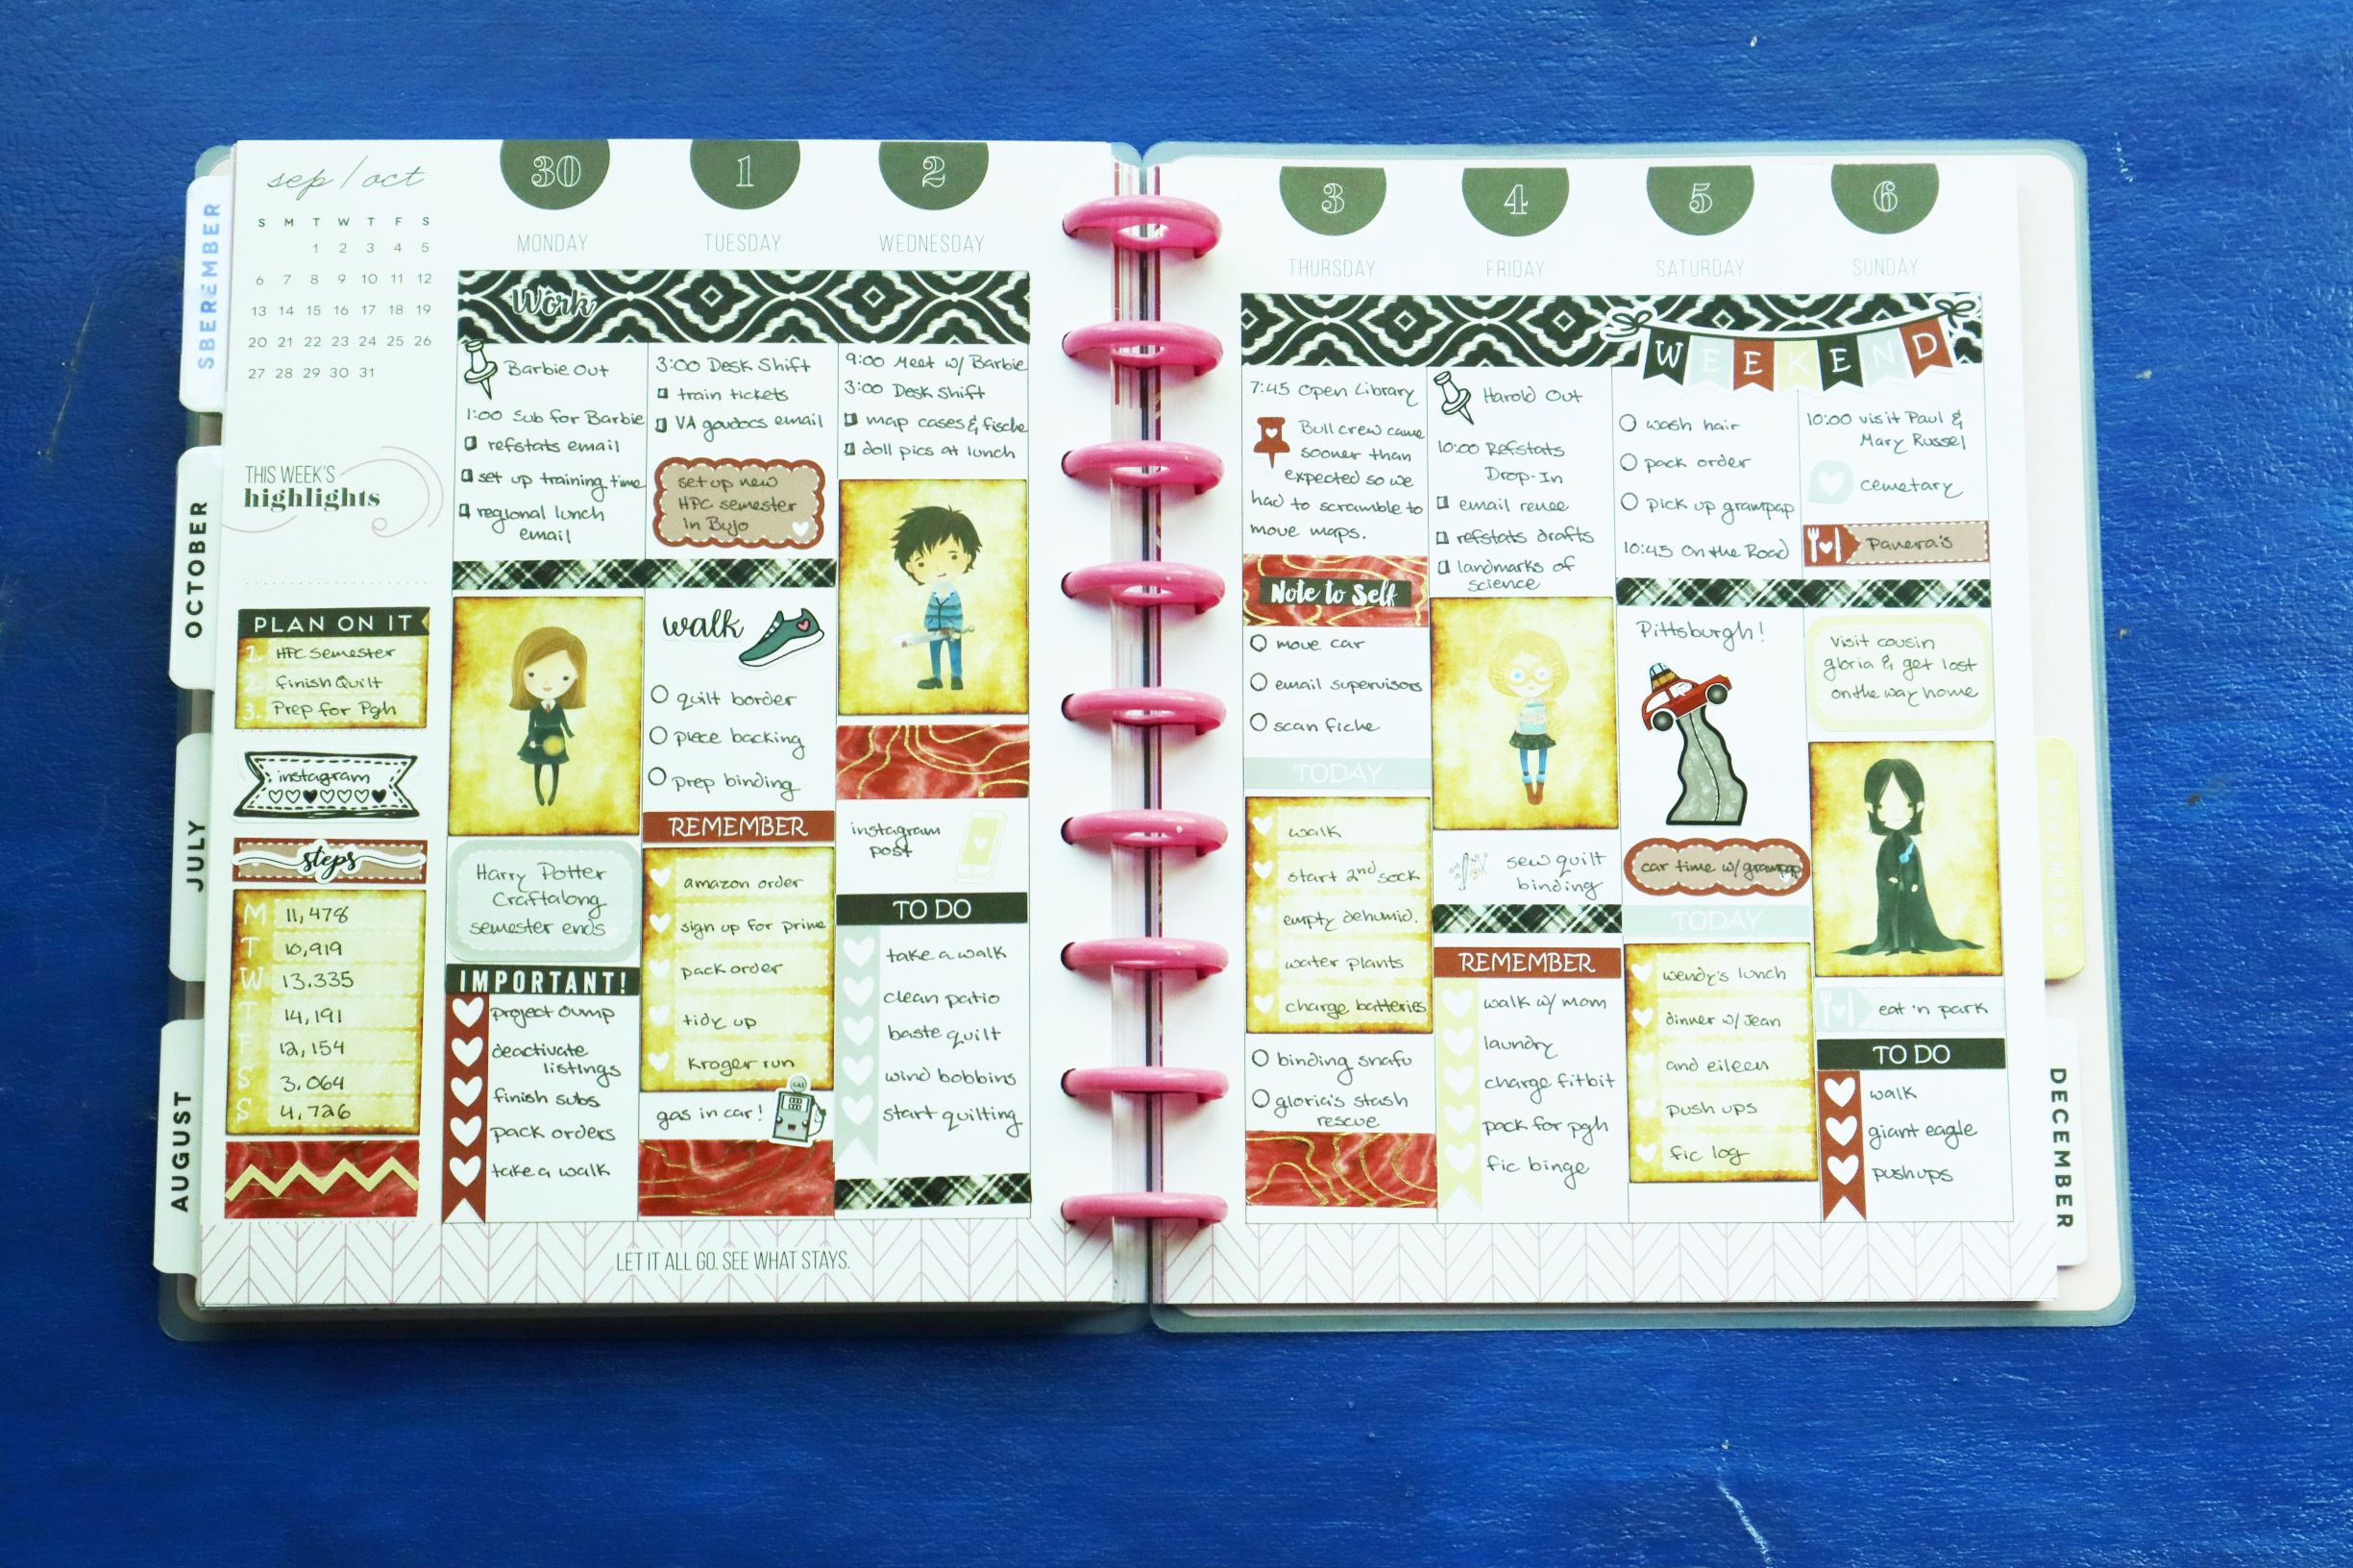 sep/oct
S M T W T F S
1 2 3 4 5
6 7 8 9 10 11 12
13 14 15 16 17 18 19
20 21 22 23 24 25 26
27 28 29 30 31
THIS WEEK'S
highlights
PLAN ON IT
1. HPC Semester
2. Finish Quilt
3. Prep for Pgh
instagram
steps
M 11,478
T 10,919
W 13,335
T 14,191
F 12,154
S 3,064
S 4,726
30
MONDAY
Work
Barbie Out
1:00 Sub for Barbie
refstats email
set up training time
regional lunch
email
Harry Potter
Craftalong
semester ends
IMPORTANT!
project dump
deactivate
listings
finish subs
pack orders
take a walk
1
TUESDAY
3:00 Desk Shift
train tickets
VA govdocs email
set up new
HPC semester
in Bujo
walk
quilt border
piece backing
prep binding
REMEMBER
amazon order
sign up for prime
pack order
tidy up
Kroger run
gas in car!
GAS
2
WEDNESDAY
9:00 Meet w/ Barbie
3:00 Desk Shift
map cases & fiche
doll pics at lunch
instagram
post
TO DO
take a walk
clean patio
baste quilt
wind bobbins
start quilting
LET IT ALL GO. SEE WHAT STAYS.
3
THURSDAY
7:45 Open Library
Bull crew came
sooner than
expected so we
had to scramble to
move maps.
Note to Self
move car
email supervisors
scan fiche
TODAY
walk
start 2nd sock
empty dehumid.
water plants
charge batteries
binding snafu
gloria's stash
rescue
4
FRIDAY
Harold Out
10:00 Refstats
Drop-In
email renee
refstats drafts
landmarks of
science
sew quilt
binding
REMEMBER
walk w/ mom
laundry
charge fitbit
pack for pgh
fic binge
5
SATURDAY
WEEKEND
wash hair
pack order
pick up grampap
10:45 On the Road
Pittsburgh!
car time w/ grampap
TODAY
wendy's lunch
dinner w/ Jean
and eileen
push ups
fic log
6
SUNDAY
10:00 visit Paul &
Mary Russel
cemetary
Panera's
Visit cousin
gloria & get lost
on the way home
eat 'n park
TO DO
walk
giant eagle
pushups
OCTOBER
JULY
AUGUST
DECEMBER